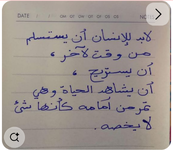 DATE
لابد للإنسان أن يستسلم
من وقت لآخر ،
أن يستريح ،
أن يشاهد الحياة وهي
تمر من أمامه كأنها شئ
لا يخصه .